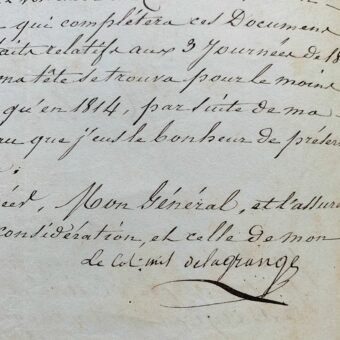 qui complètera ces Document
faits relatifs aux 3 Journées de 18
ma tête se trouva pour le moins
qu'en 1814, par suite de ma
que j'eus le bonheur de préser
Mon Général, et l'assura
considération, et celle de mon
Le Col. delagrange